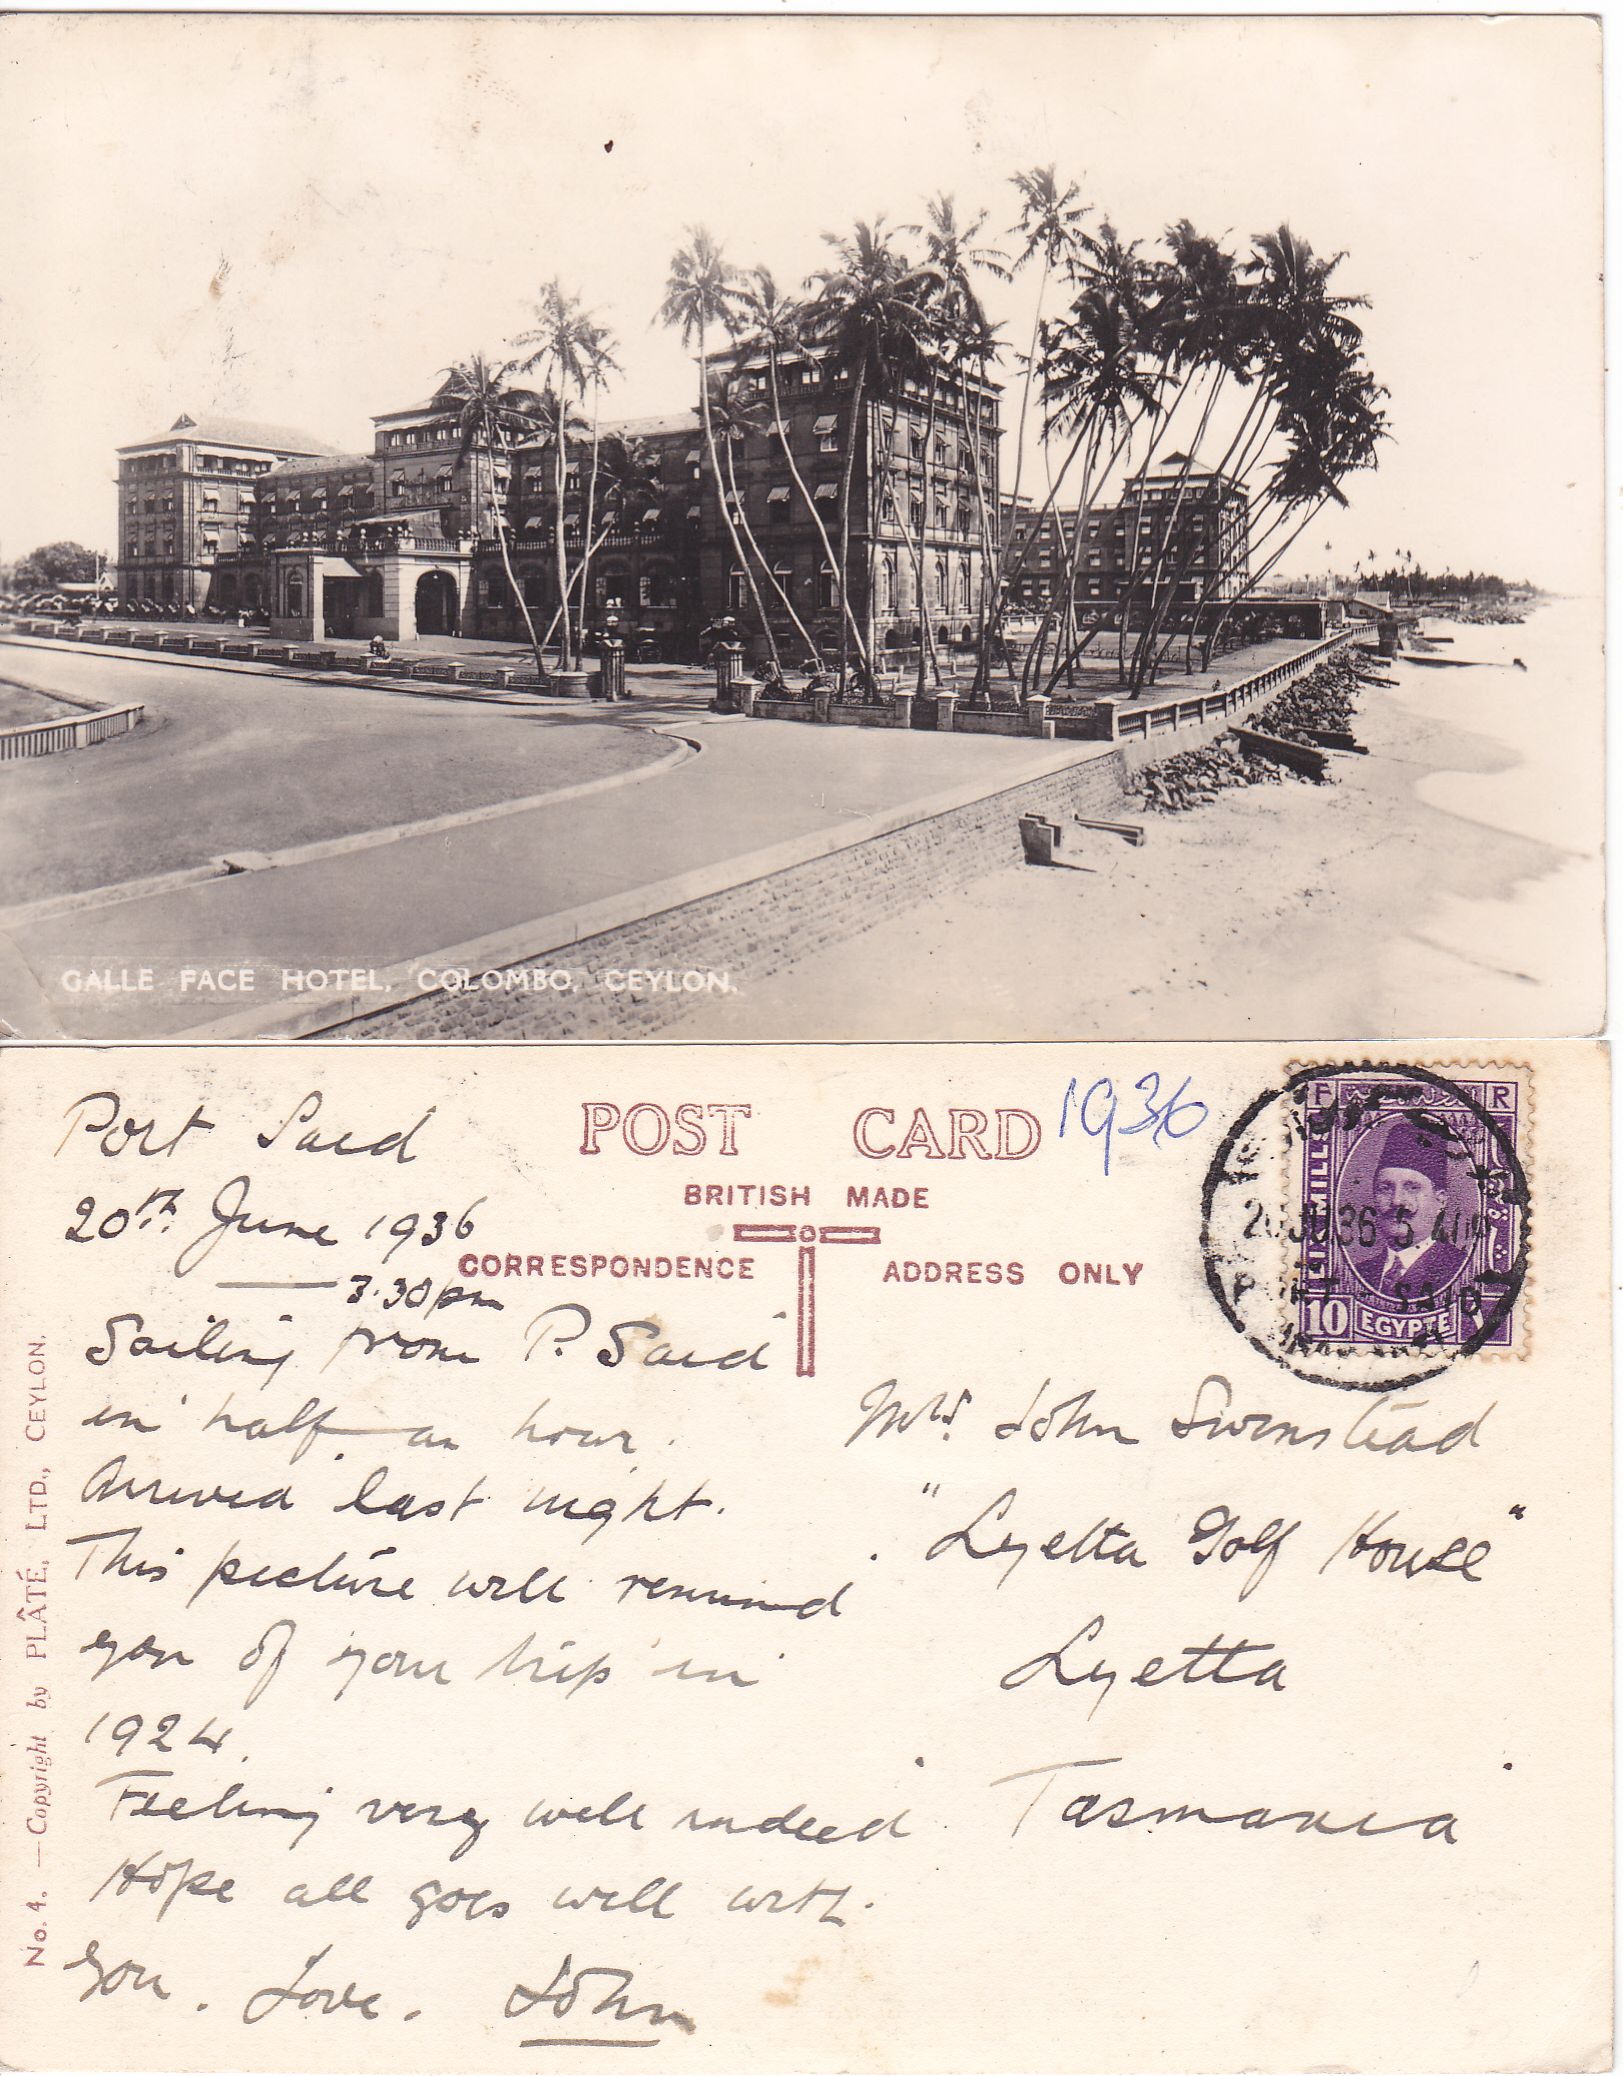 GALLE FACE HOTEL, COLOMBO, CEYLON.
POST CARD
1936
BRITISH MADE
CORRESPONDENCE
ADDRESS ONLY
No. 4. — Copyright by PLÂTÉ, LTD., CEYLON.
Port Said
20th June 1936
3.30 pm
Sailing from P. Said
in half an hour.
Arrived last night.
This picture will remind
you of your trip in
1924.
Feeling very well indeed
Hope all goes well with
you. Love. John
Mrs. John Swinstead
"Lyetta Golf House"
Lyetta
Tasmania
F R
MILLS
10 EGYPTE
JU 36 5
PORT - SAID